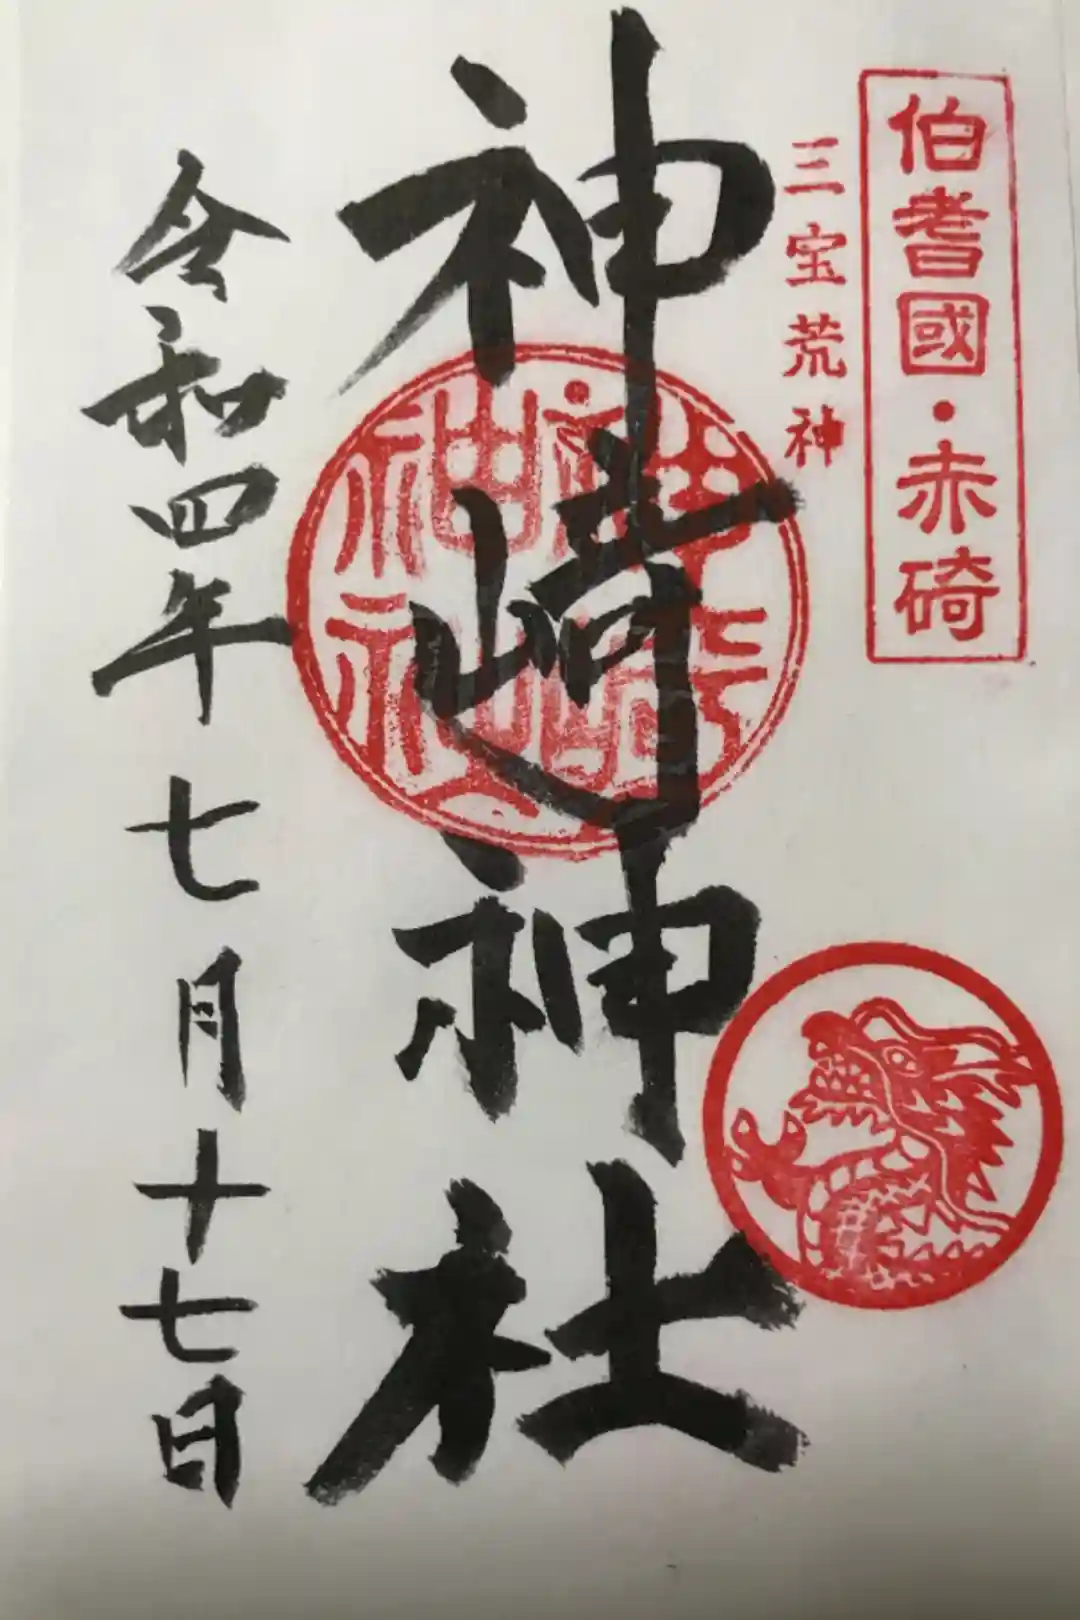 伯耆國・赤碕
三宝荒神
神崎神社
令和四年七月十七日